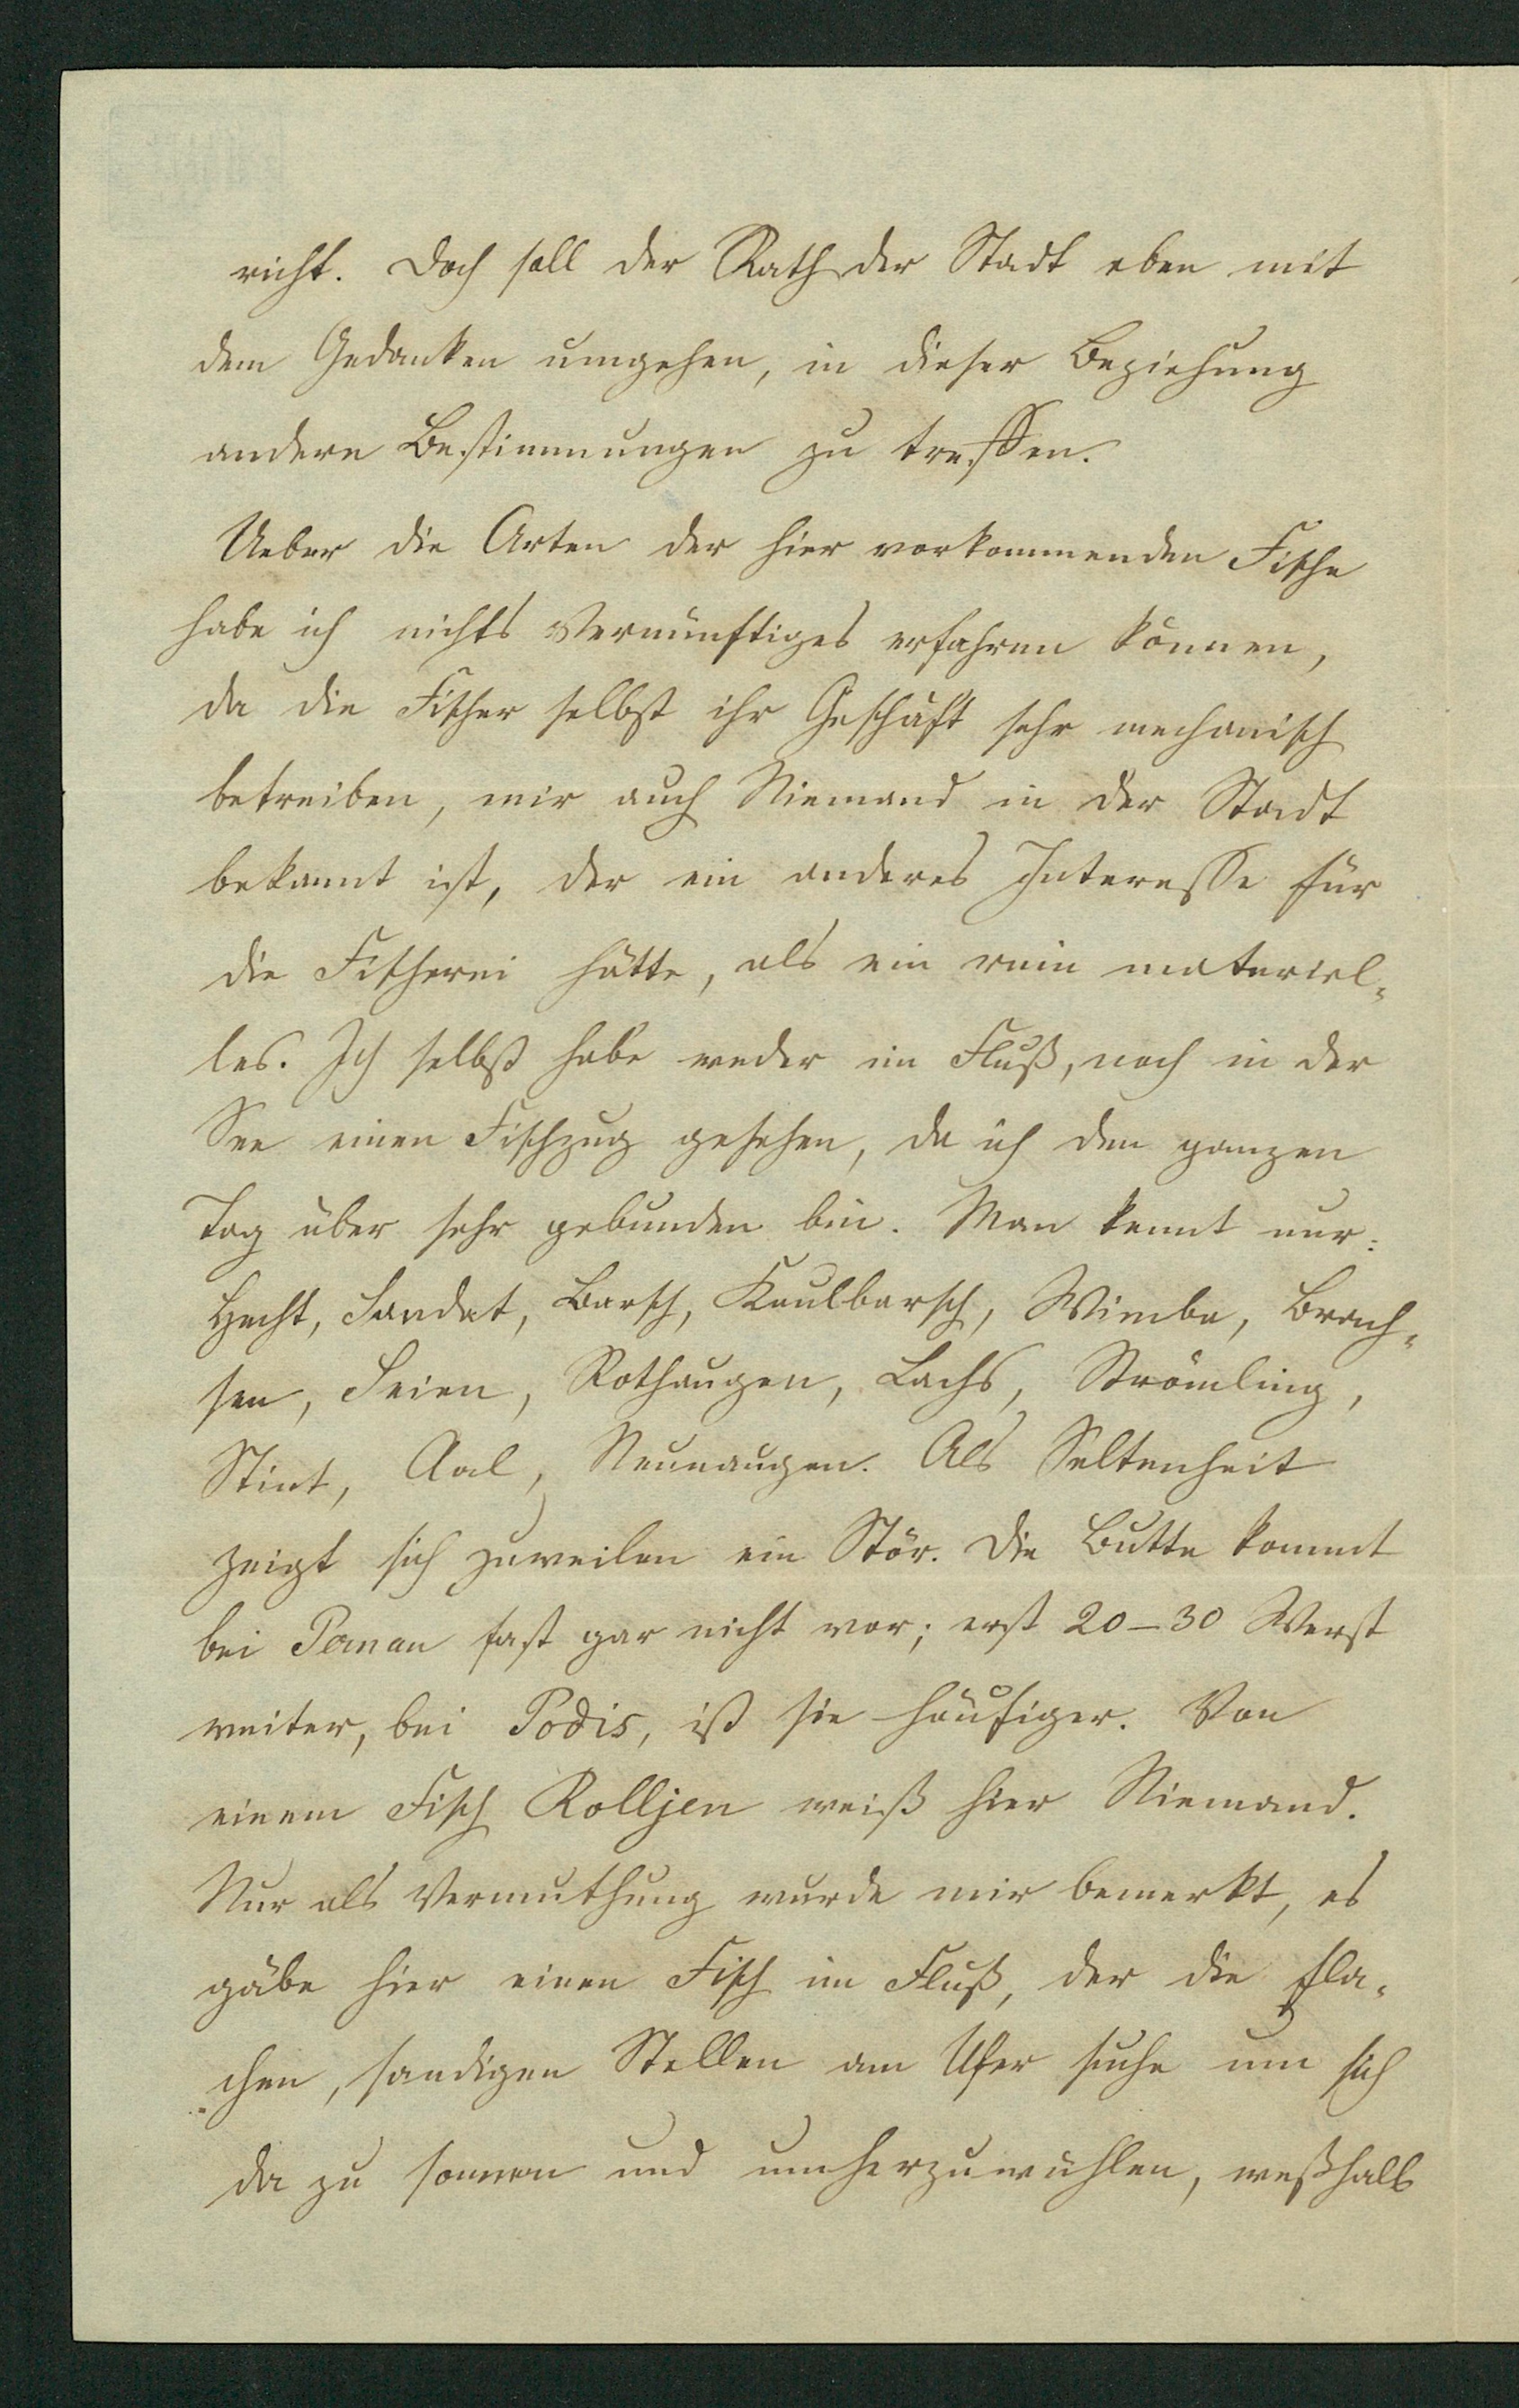 richt. Doch soll der Rath der Stadt eben mit
dem Gedanken umgehen, in dieser Beziehung
andere Bestimmungen zu treffen.
Ueber die Arten der hier vorkommenden Fische
habe ich nichts Vernünftiges erfahren können,
da die Fischer selbst ihr Geschäft sehr mechanisch
betreiben, mir auch Niemand in der Stadt
bekannt ist, der ein anderes Interesse für
die Fischerei hätte, als ein rein materiel-
les. Ich selbst habe weder im Fluß, noch in der
See einen Fischzug gesehen, da ich den ganzen
Tag über sehr gebunden bin. Man kennt nur:
Hecht, Sandat, Barsch, Kaulbarsch, Wimba, Brach-
sen, Seien, Rothaugen, Lachs, Strömling,
Stint, Aal, Neunaugen. Als Seltenheit
zeigt sich zuweilen ein Stör. Die Butte kommt
bei Pernau fast gar nicht vor; erst 20–30 Werst
weiter, bei Podis, ist sie häufiger. Von
einem Fisch Rolljen weiß hier Niemand.
Nur als Vermuthung wurde mir bemerkt, es
gäbe hier einen Fisch im Fluß, der die fla-
chen, sandigen Stellen am Ufer suche um sich
da zu sonnen und umherzuwühlen, weßhalb